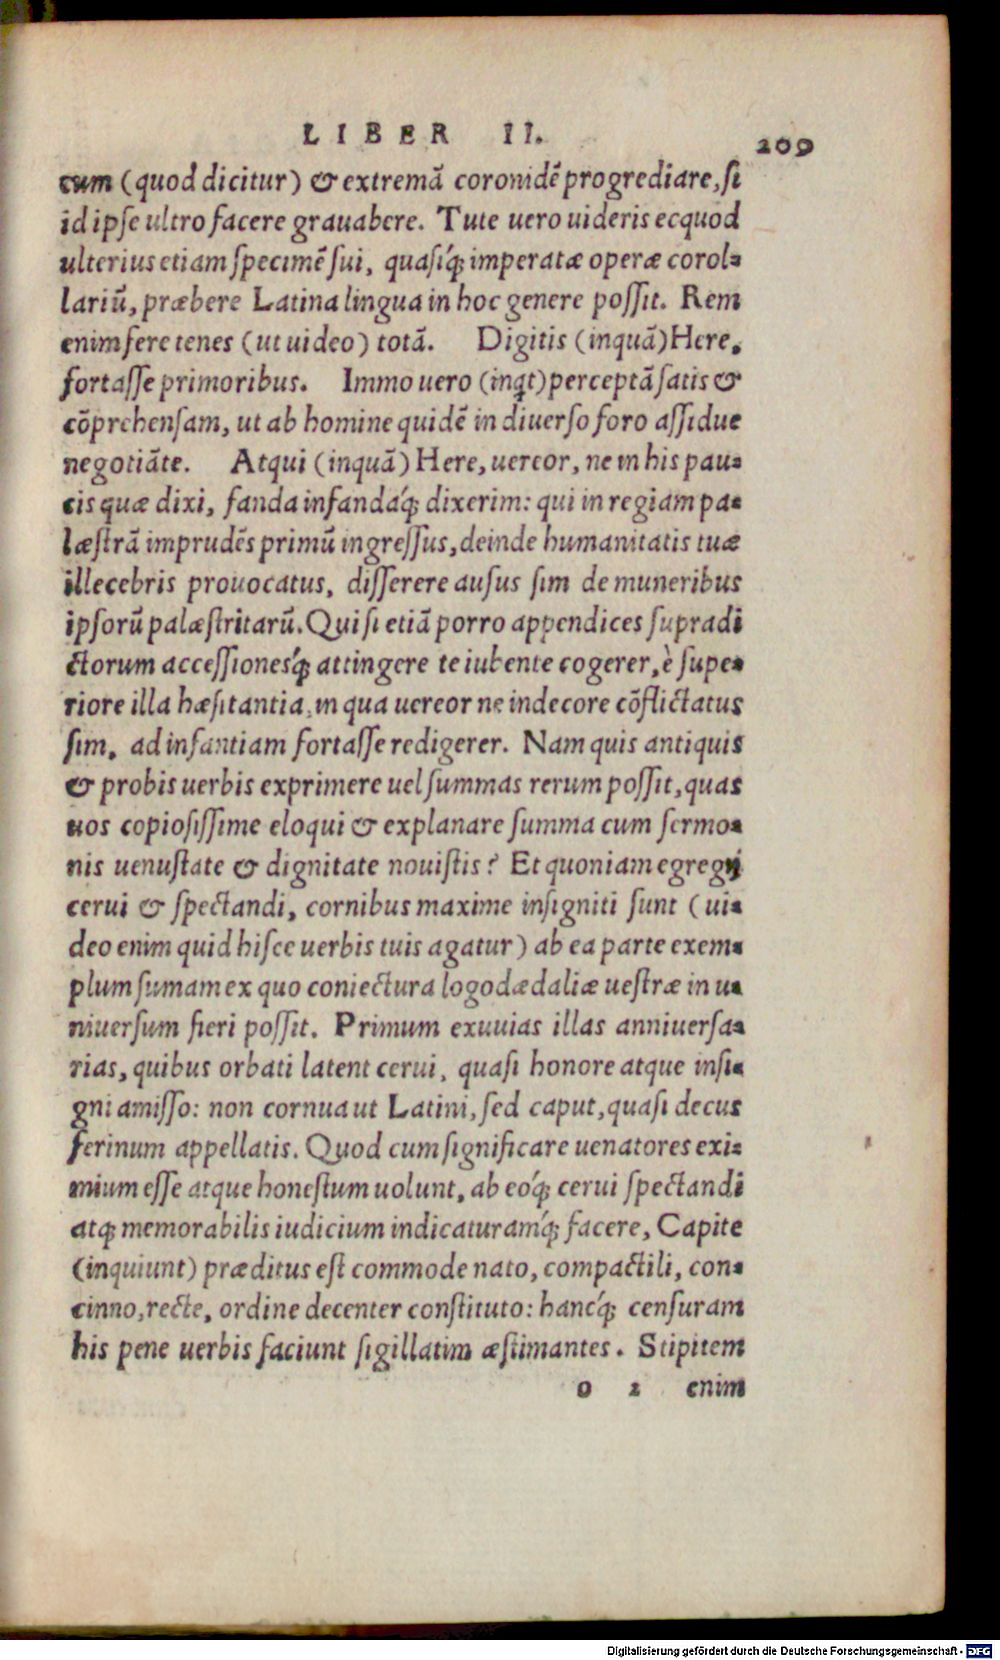 LIBER II. 209
cum (quod dicitur) & extremā coronidē progrediare, si
id ipse ultro facere grauabere. Tute uero uideris ecquod
ulterius etiam specimē sui, quasiq́; imperatæ operæ corol-
lariū, præbere Latina lingua in hoc genere possit. Rem
enim fere tenes (ut uideo) totā. Digitis (inquā) Here,
fortasse primoribus. Immo uero (inqt) perceptā satis &
cōprehensam, ut ab homine quidē in diuerso foro assidue
negotiāte. Atqui (inquā) Here, uereor, ne in his pau-
cis quæ dixi, fanda infandaq́; dixerim: qui in regiam pa-
læstrā imprudēs primū ingressus, deinde humanitatis tuæ
illecebris prouocatus, disserere ausus sim de muneribus
ipsorū palæstritarū. Qui si etiā porro appendices supradi
ctorum accessionesq́; attingere te iubente cogerer, è supe-
riore illa hæsitantia, in qua uereor ne indecore cōflictatus
sim, ad infantiam fortasse redigerer. Nam quis antiquis
& probis uerbis exprimere uel summas rerum possit, quas
uos copiosissime eloqui & explanare summa cum sermo-
nis uenustate & dignitate nouistis? Et quoniam egregij
cerui & spectandi, cornibus maxime insigniti sunt (ui-
deo enim quid hisce uerbis tuis agatur) ab ea parte exem-
plum sumam ex quo coniectura logodædaliæ uestræ in u-
niuersum fieri possit. Primum exuuias illas anniuersa-
rias, quibus orbati latent cerui, quasi honore atque insi-
gni amisso: non cornua ut Latini, sed caput, quasi decus
ferinum appellatis. Quod cum significare uenatores exi-
mium esse atque honestum uolunt, ab eoq́; cerui spectandi
atq; memorabilis iudicium indicaturamq́; facere, Capite
(inquiunt) præditus est commode nato, compactili, con-
cinno, recte, ordine decenter constituto: hancq́; censuram
his pene uerbis faciunt sigillatim æstimantes. Stipitem
o 2 enim
Digitalisierung gefördert durch die Deutsche Forschungsgemeinschaft - DFG